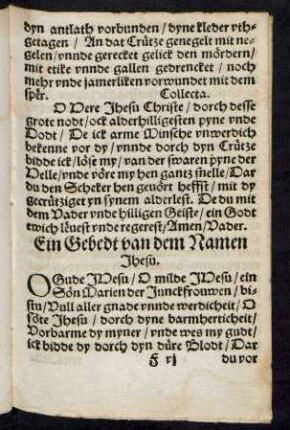 dyn antlath vorbunden / dyne kleder vth-
getagen / An dat Crütze genegelt mit ne-
gelen / vnnde gerecket gelick den mördern /
mit etike vnnde gallen gedrencket / noch
mehr vnde jamerliken vorwundet mit dem
spêr. Collecta.
O Here Jhesu Christe / dorch desse
grote nodt / ock alderhilligesten pyne vnde
Dodt / De ick arme Minsche vnwerdich
bekenne vor dy / vnnde dorch dyn Crütze
bidde ick / löse my / van der swaren pyne der
Helle / vnde vöre my hen gantz snelle / Dar
du den Scheker hen gevört heffst / mit dy
gecrütziget yn synem alderlest. De du mit
dem Vader vnde hilligen Geiste / ein Godt
ewich leuest vnde regerest / Amen / Vader.
Ein Gebedt van dem Namen
Jhesu.
O Gude JHesu / O milde JHesu / ein
Sön Marien der Junckfrouwen / bi-
stu / Vull aller gnade vnnde werdicheit / O
söte Jhesu / dorch dyne barmherticheit /
Vorbarme dy myner / vnde wes my gudt /
ick bidde dy dorch dyn düre Blodt / Dar
F vj du vor